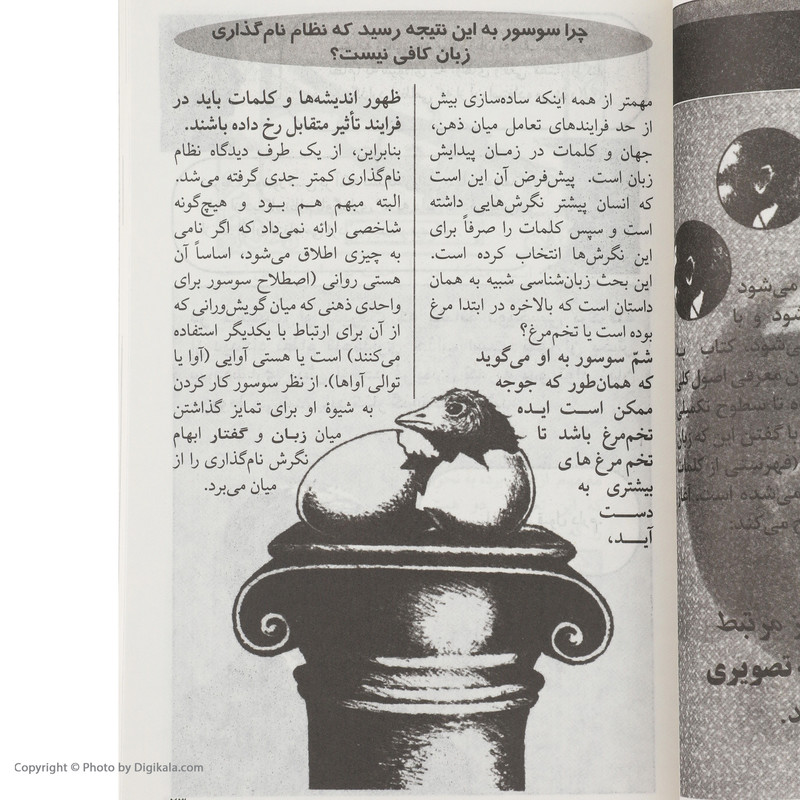 چرا سوسور به این نتیجه رسید که نظام نام‌گذاری
زبان کافی نیست؟
مهمتر از همه اینکه ساده‌سازی بیش
از حد فرایندهای تعامل میان ذهن،
جهان و کلمات در زمان پیدایش
زبان است. پیش‌فرض آن این است
که انسان پیشتر نگرش‌هایی داشته
است و سپس کلمات را صرفاً برای
این نگرش‌ها انتخاب کرده است.
این بحث زبان‌شناسی شبیه به همان
داستان است که بالاخره در ابتدا مرغ
بوده است یا تخم‌مرغ؟
شمّ سوسور به او می‌گوید
که همان‌طور که جوجه
ممکن است ایده
تخم‌مرغ باشد تا
تخم مرغ های
بیشتری به
دست
آید،
ظهور اندیشه‌ها و کلمات باید در
فرایند تأثیر متقابل رخ داده باشند.
بنابراین، از یک طرف دیدگاه نظام
نام‌گذاری کمتر جدی گرفته می‌شد.
البته مبهم هم بود و هیچ‌گونه
شاخصی ارائه نمی‌داد که اگر نامی
به چیزی اطلاق می‌شود، اساساً آن
هستی روانی (اصطلاح سوسور برای
واحدی ذهنی که میان گویش‌ورانی که
از آن برای ارتباط با یکدیگر استفاده
می‌کنند) است یا هستی آوایی (آوا یا
توالی آواها). از نظر سوسور کار کردن
به شیوهٔ او برای تمایز گذاشتن
میان زبان و گفتار ابهام
نگرش نام‌گذاری را از
میان می‌برد.
می‌شود
شود و با
می‌شود. کتاب
معرفی اصول
تا سطوح
با گفتن این که
(فهرستی از
می‌شده است.
می‌کند:
مرتبط
تصویری
د.
Copyright © Photo by Digikala.com